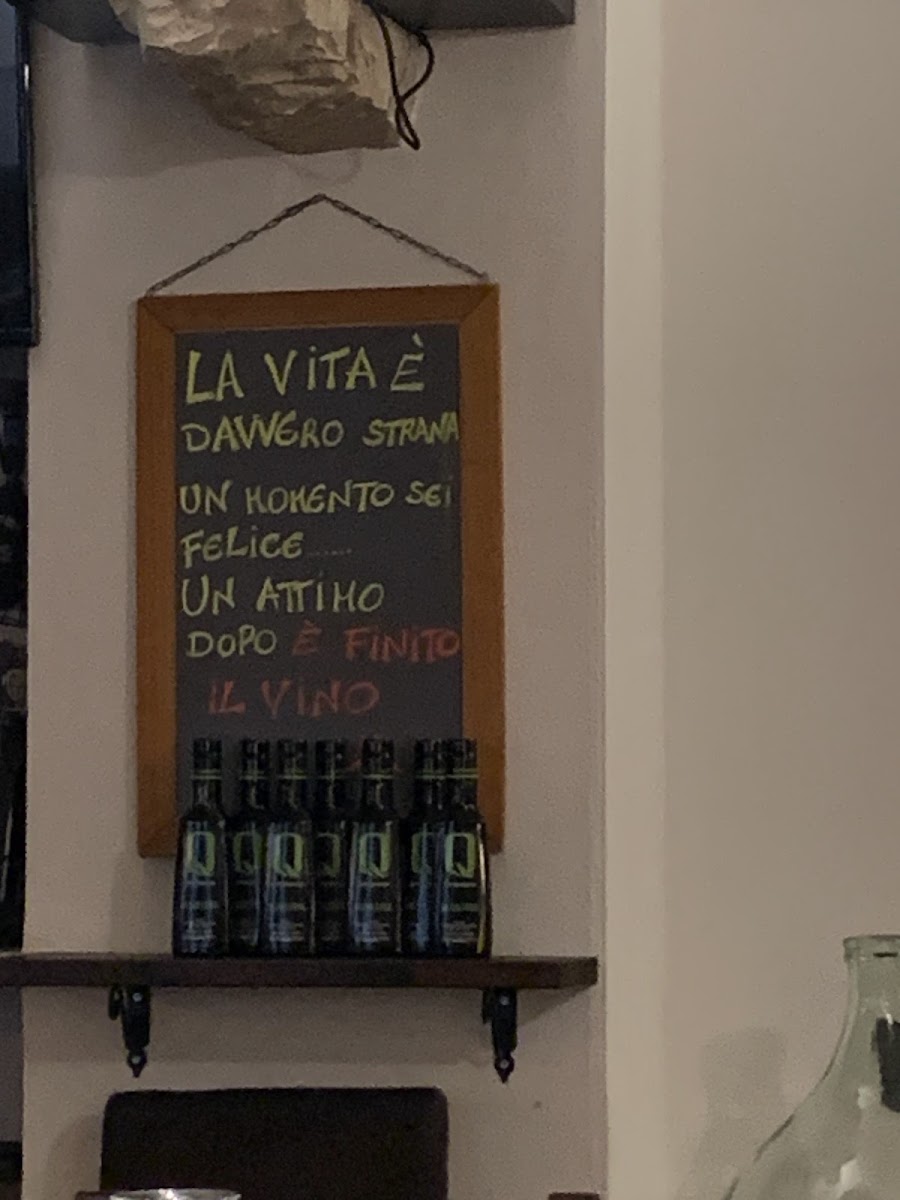 LA VITA È
DAVVERO STRANA
UN MOMENTO SEI
FELICE......
UN ATTIMO
DOPO È FINITO
IL VINO
Q Q Q Q Q Q Q